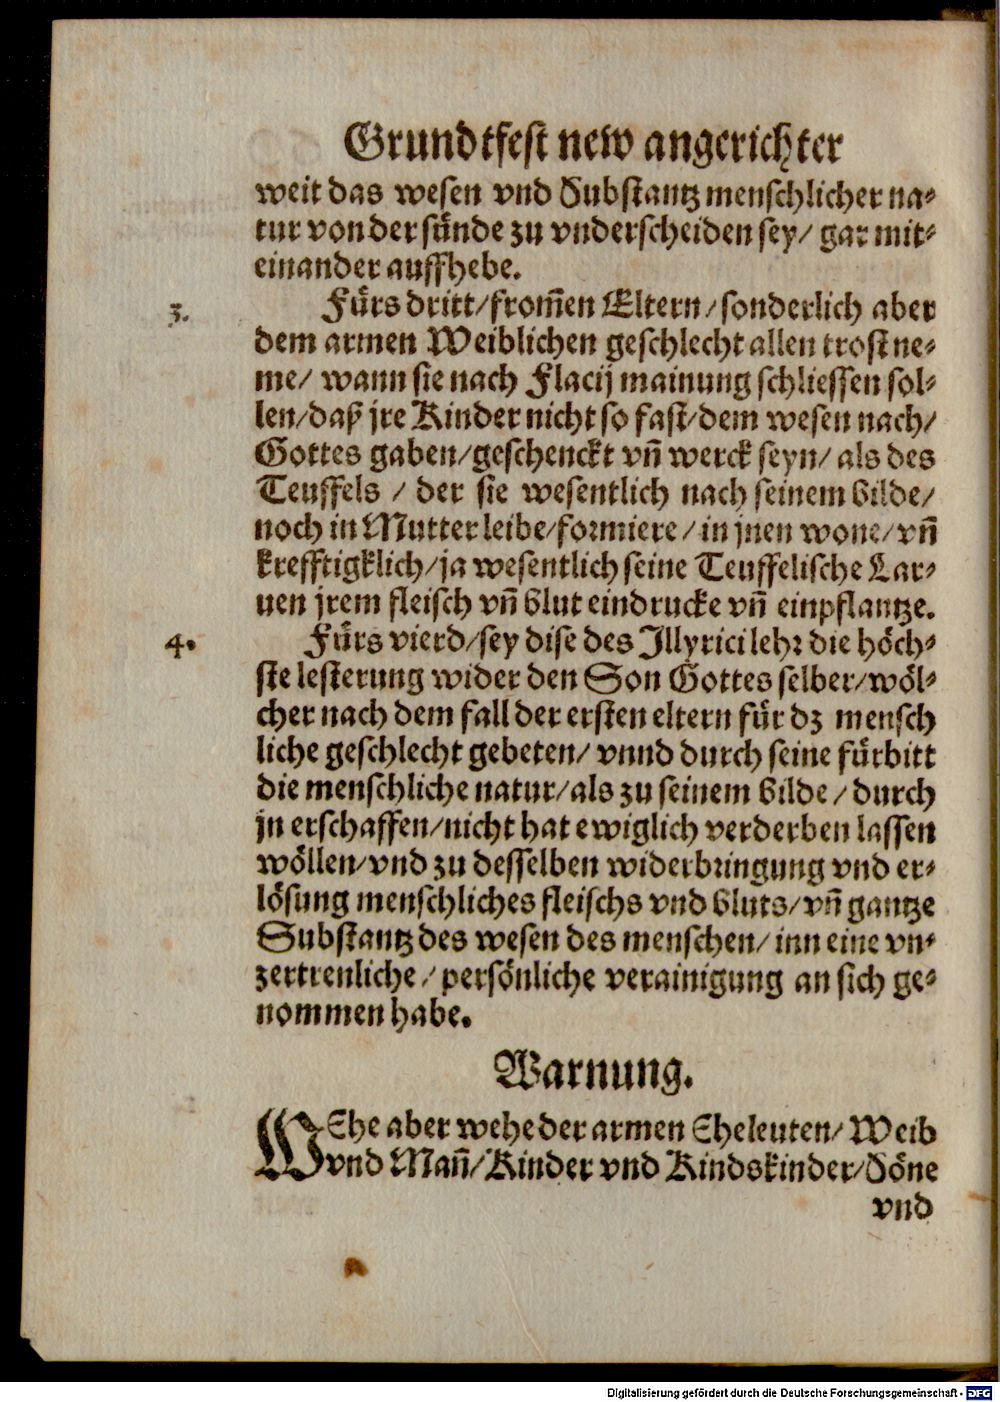 Grundtfest new angerichter
weit das wesen vnd Substantz menschlicher na⸗
tur von der sünde zu vnderscheiden sey/ gar mit⸗
einander auffhebe.
3.
Fürs dritt/from̃en Eltern/sonderlich aber
dem armen Weiblichen geschlecht allen trost ne⸗
me/ wann sie nach Flacij mainung schliessen sol⸗
len/daß jre Kinder nicht so fast/dem wesen nach/
Gottes gaben/geschenckt vñ werck seyn/ als des
Teuffels / der sie wesentlich nach seinem bilde/
noch in Mutter leibe/formiere/in jnen wone/vñ
krefftigklich/ja wesentlich seine Teuffelische Lar⸗
uen jrem fleisch vñ blut eindrucke vñ einpflantze.
4.
Fürs vierd/sey dise des Illyrici lehr die höch⸗
ste lesterung wider den Son Gottes selber/wöl⸗
cher nach dem fall der ersten eltern für dz mensch
liche geschlecht gebeten/ vnnd durch seine fürbitt
die menschliche natur/als zu seinem bilde/durch
jn erschaffen/nicht hat ewiglich verderben lassen
wöllen/vnd zu desselben widerbringung vnd er⸗
lösung menschliches fleischs vnd bluts/vñ gantze
Substantz des wesen des menschen/inn eine vn⸗
zertrenliche/persönliche verainigung an sich ge⸗
nommen habe.
Warnung.
WEhe aber wehe der armen Eheleuten/Weib
vnd Mañ/Kinder vnd Kindskinder/Söne
vnd
Digitalisierung gefördert durch die Deutsche Forschungsgemeinschaft - DFG